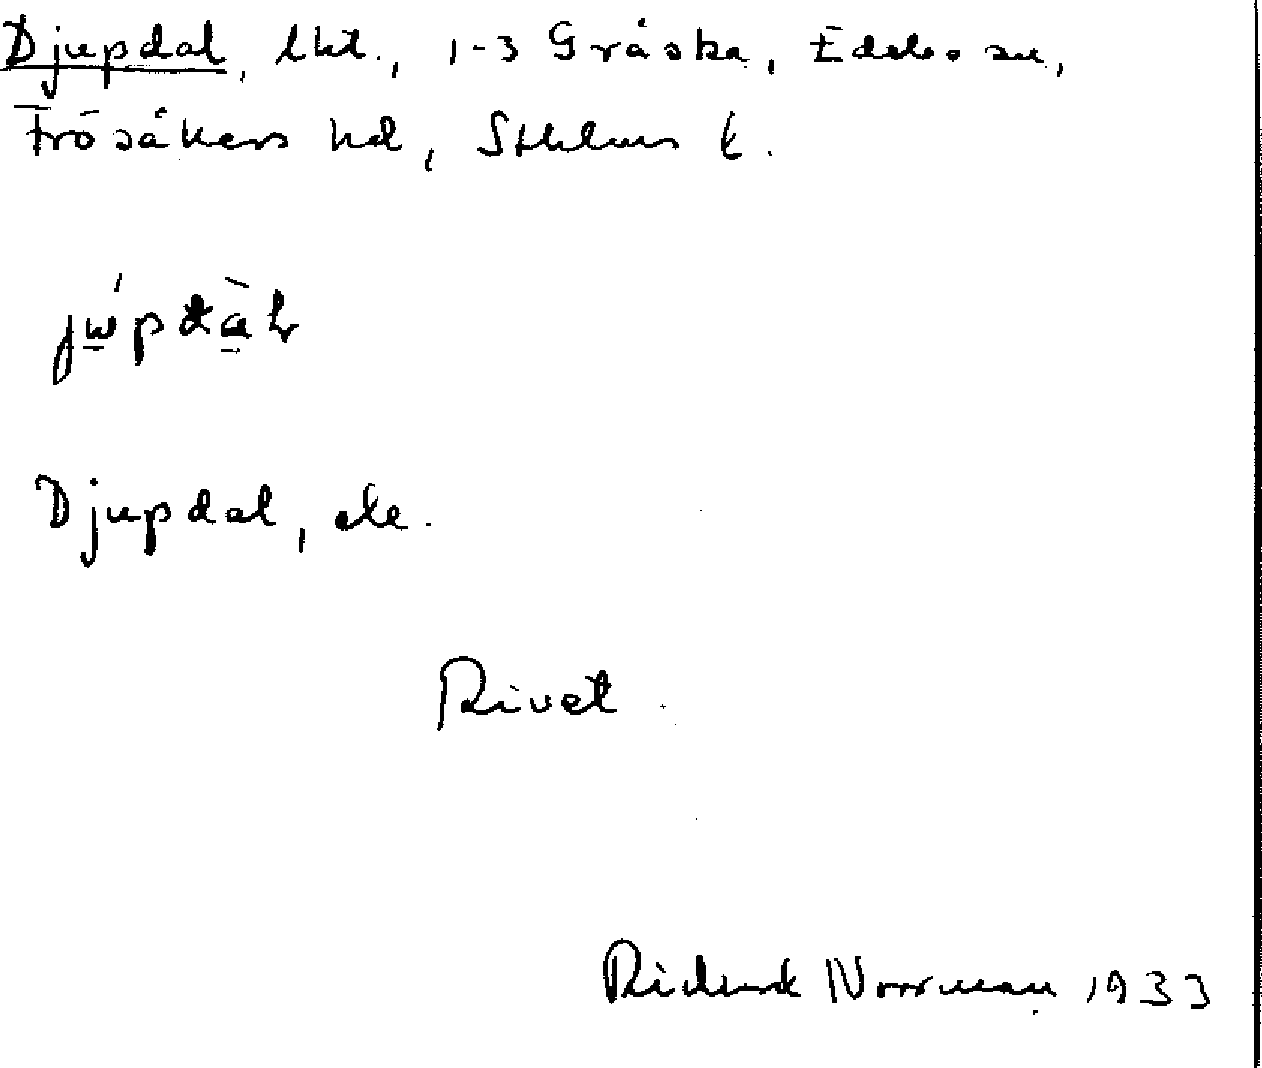 Djupdal, lht., 1-3 Gråska, Edebo sn,
Frösåkers hd, Sthlms l.
jẃ̲pdà̲ł
Djupdal, ä̲lle.
Rivet.
Richard Norrman 1933